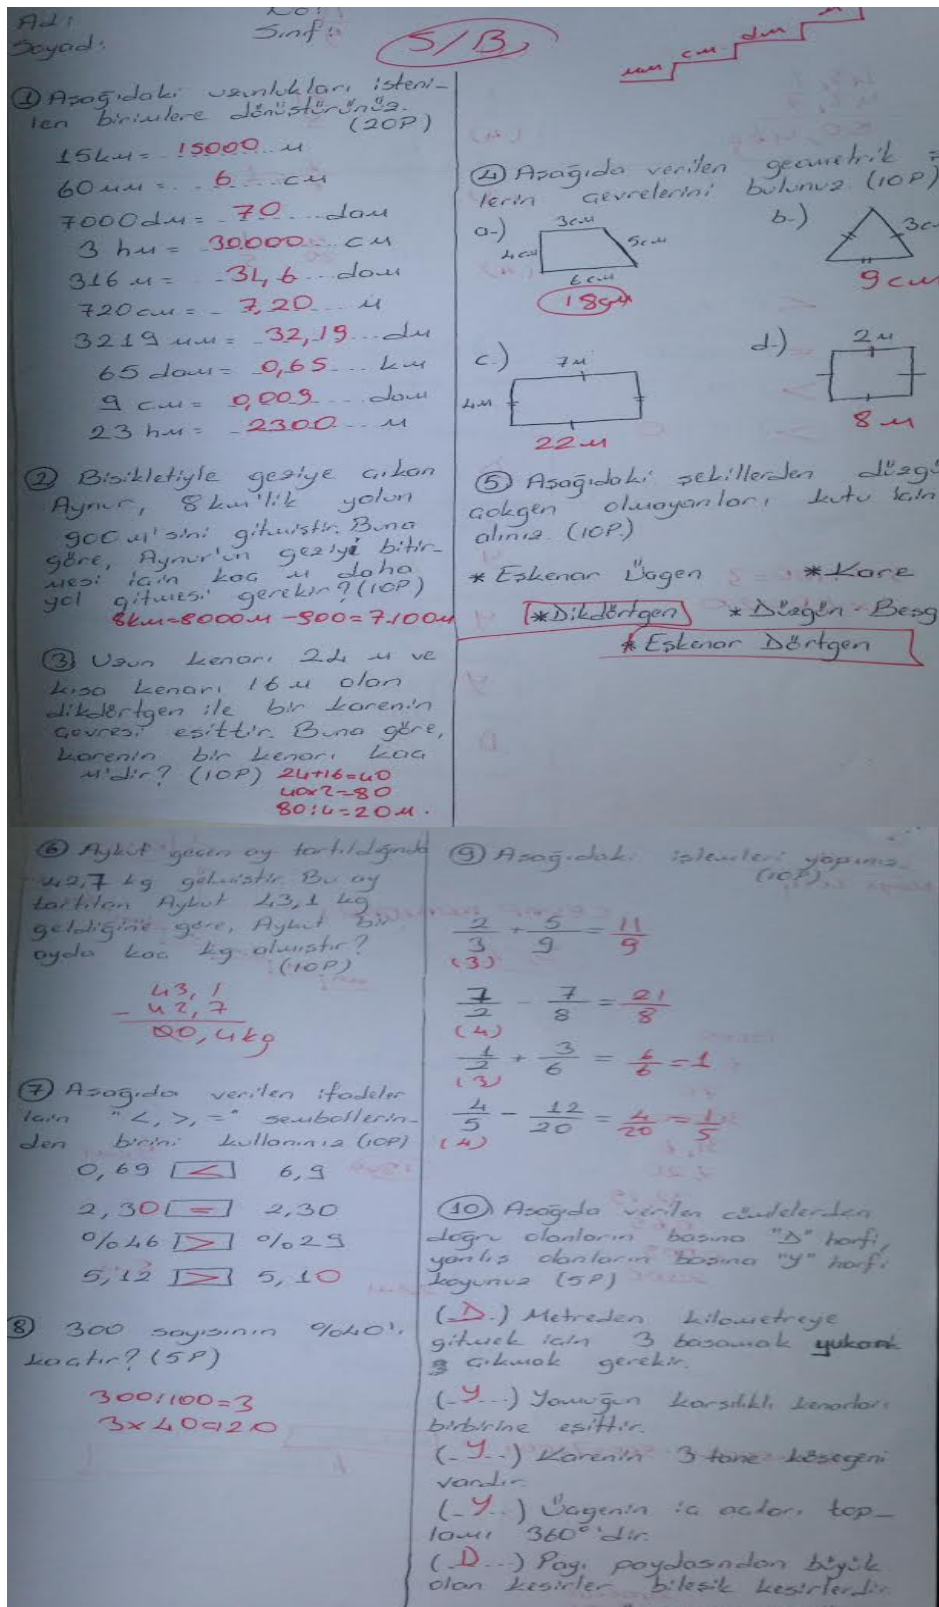 Adı:
No:
Soyad:
Sınıf:
5/B
① Aşağıdaki uzunlukları isteni-
len birimlere dönüştürünüz.
(20P)
15km = 15000 m
60mm = 6 cm
7000dm = 70 dam
3 hm = 30.000 cm
316 m = 31,6 dam
720cm = 7,20 m
3219 mm = 32,19 dm
65 dam = 0,65 km
9 cm = 0,009 dam
23 hm = 2300 m
② Bisikletiyle geziye çıkan
Aynur, 8km'lik yolun
900m'sini gitmiştir. Buna
göre, Aynur'un geziyi bitir-
mesi için kaç m daha
yol gitmesi gerekir? (10P)
8km=8000m -900=7.100m
③ Uzun kenarı 24 m ve
kısa kenarı 16 m olan
dikdörtgen ile bir karenin
çevresi eşittir. Buna göre,
karenin bir kenarı kaç
m'dir? (10P) 24+16=40
40x2=80
80:4=20m.
mm cm dm m
④ Aşağıda verilen geometrik
lerin çevrelerini bulunuz. (10P)
a-)
3cm
4cm
5cm
6cm
18cm
b-)
3c
9cm
c-)
7m
4m
22m
d-)
2m
8m
⑤ Aşağıdaki şekillerden düzgü
çokgen olmayanları kutu için
alınız. (10P.)
* Eşkenar Üçgen * Kare
*Dikdörtgen * Düzgün Beşg
* Eşkenar Dörtgen
⑥ Aykut geçen ay tartıldığında
42,7 kg gelmiştir. Bu ay
tartılan Aykut 43,1 kg
geldiğine göre, Aykut bir
ayda kaç kg almıştır?
(10P)
43,1
- 42,7
00,4kg
⑦ Aşağıda verilen ifadeler
için "<, >, =" sembollerin-
den birini kullanınız (10P)
0,69 < 6,9
2,30 = 2,30
%46 > %29
5,12 > 5,10
⑧ 300 sayısının %40'ı
kaçtır? (5P)
300:100=3
3x40=120
⑨ Aşağıdaki işlemleri yapınız.
(10P)
2/3 + 5/9 = 11/9
(3)
7/2 - 7/8 = 21/8
(4)
1/2 + 3/6 = 6/6 = 1
(3)
4/5 - 12/20 = 4/20 = 1/5
(4)
⑩ Aşağıda verilen cümlelerden
doğru olanların başına "D" harfi,
yanlış olanların başına "Y" harfi
koyunuz (5P)
(D) Metreden kilometreye
gitmek için 3 basamak yukarı
çıkmak gerekir.
(Y) Yamuğun karşılıklı kenarları
birbirine eşittir.
(Y) Karenin 3 tane köşegeni
vardır.
(Y) Üçgenin iç açıları top-
lamı 360°'dir.
(D) Payı paydasından büyük
olan kesirler bileşik kesirlerdir.